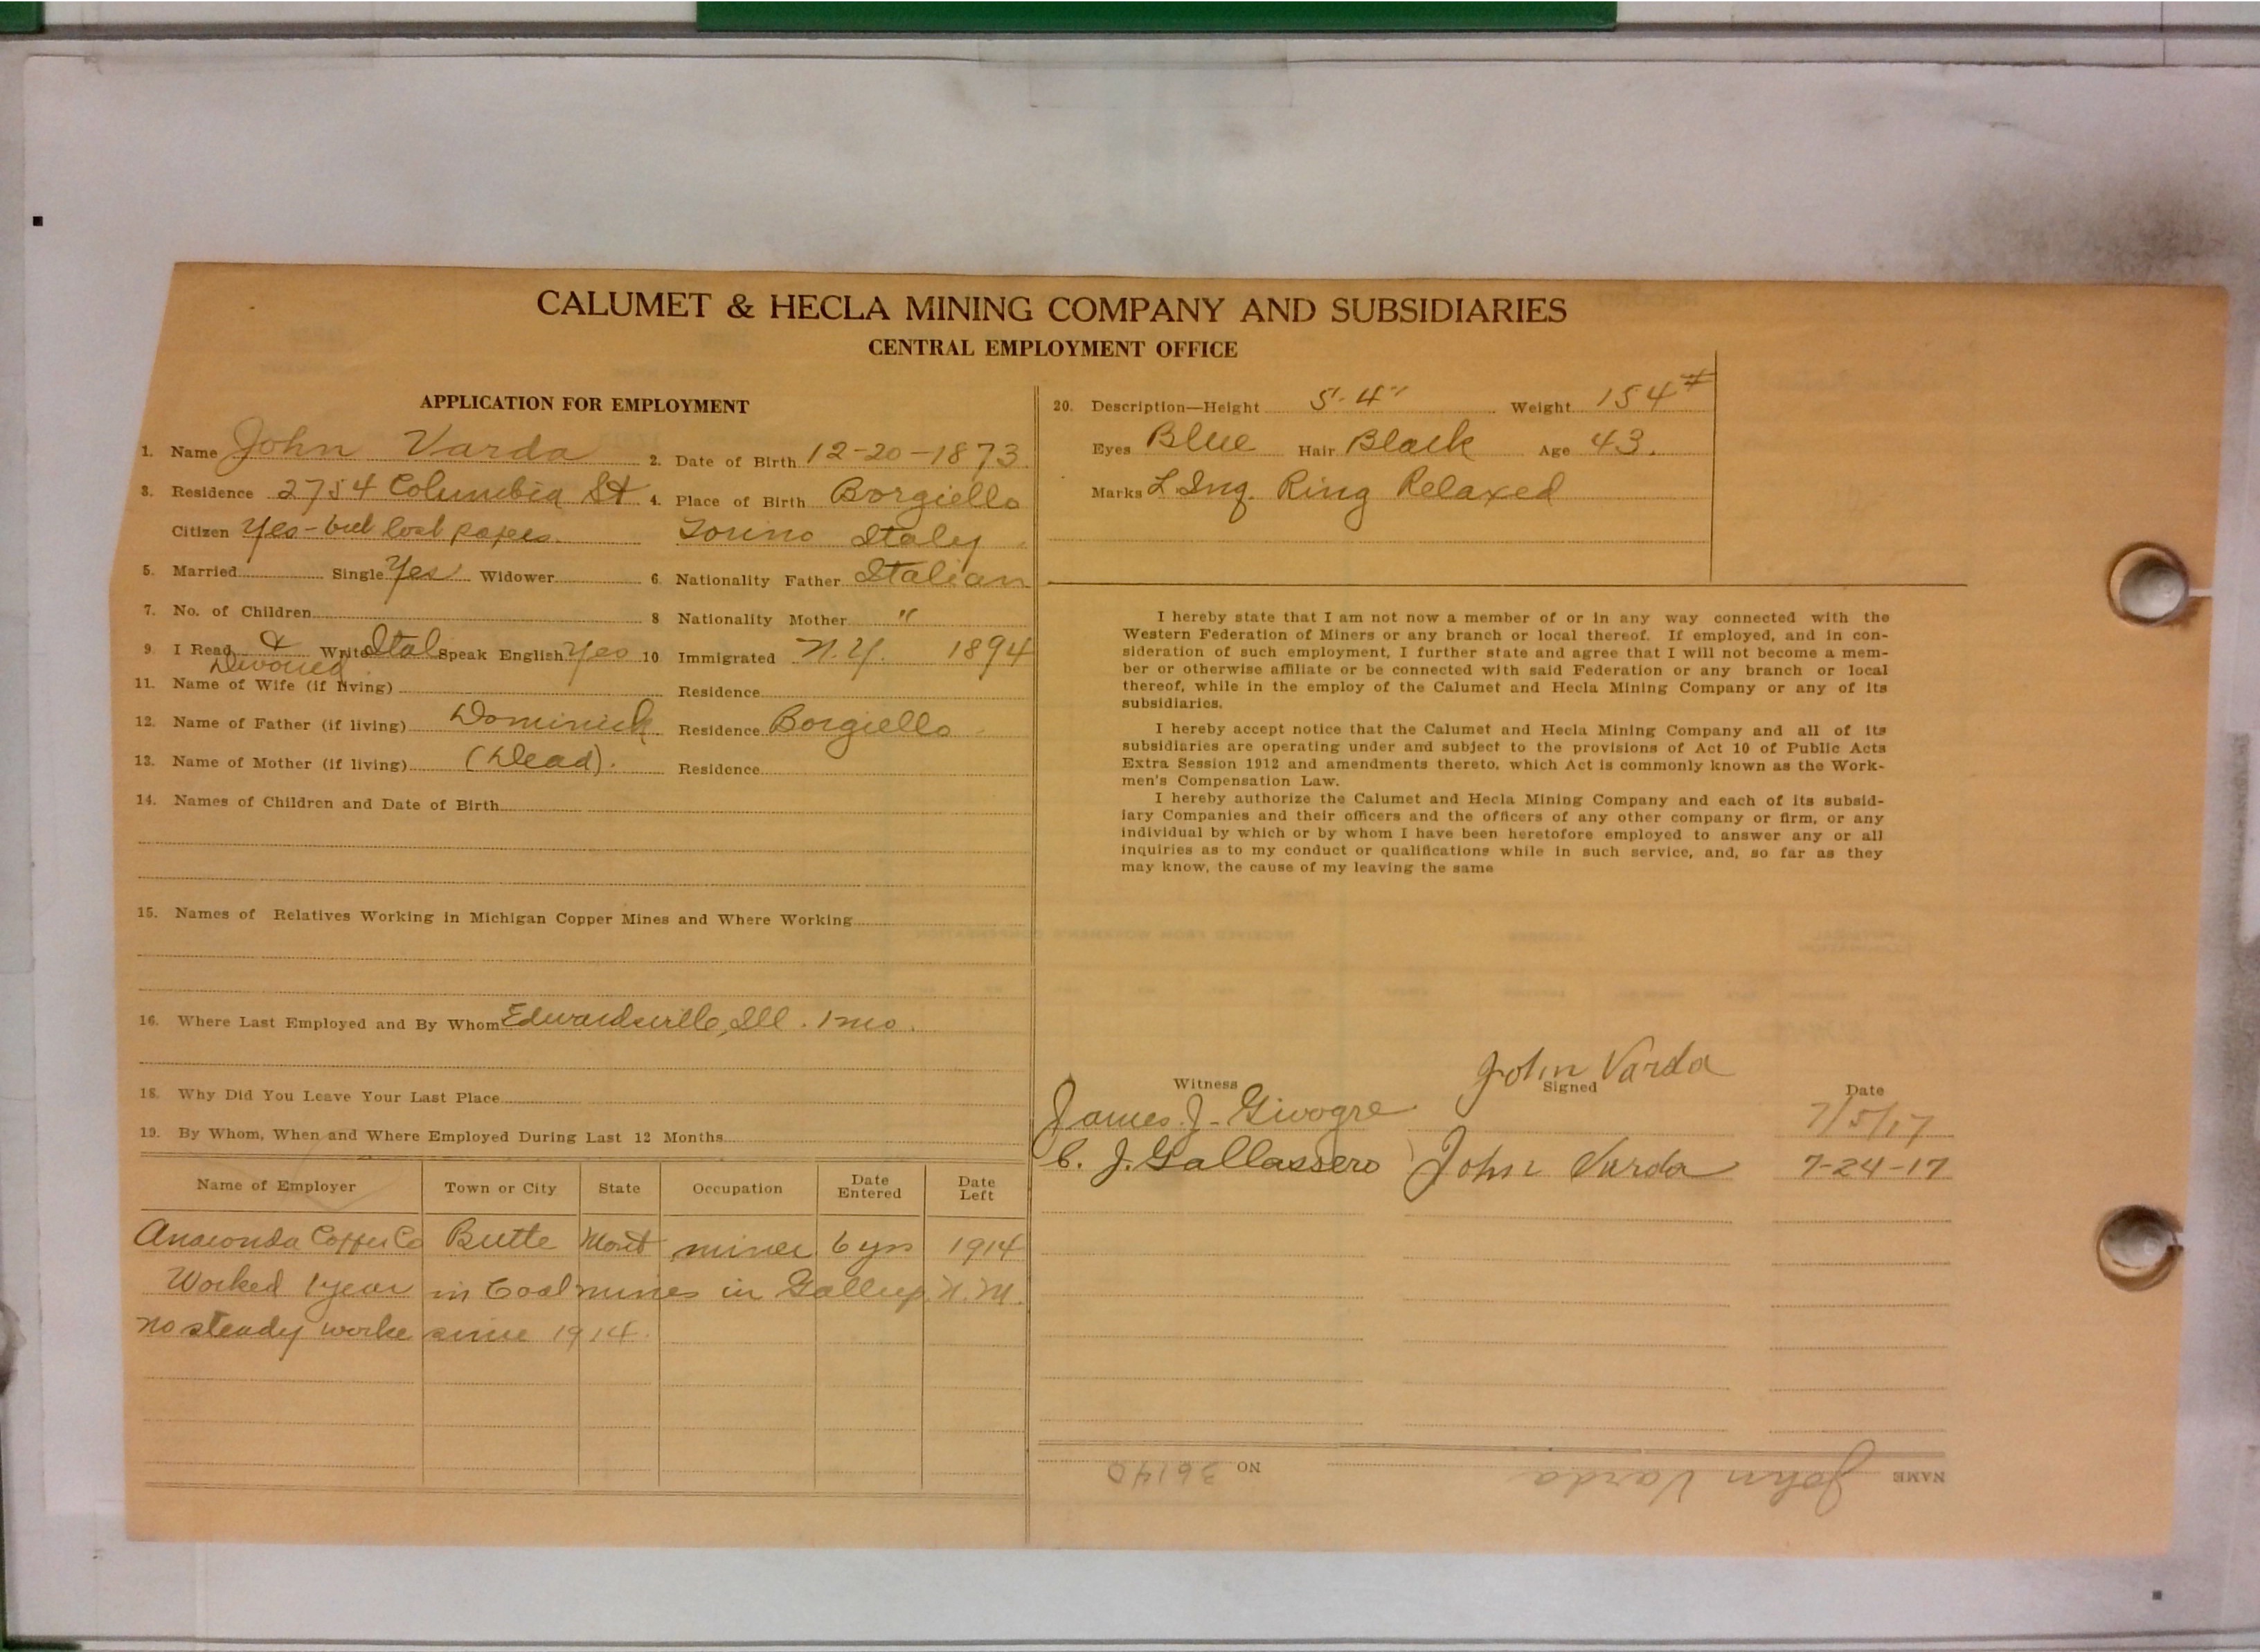 CALUMET & HECLA MINING COMPANY AND SUBSIDIARIES
CENTRAL EMPLOYMENT OFFICE
APPLICATION FOR EMPLOYMENT
1. Name John Varda 2. Date of Birth 12-20-1873
3. Residence 2754 Columbia St 4. Place of Birth Borgiello
Citizen Yes - but lost papers. Torino Italy
5. Married Single Yes Widower 6. Nationality Father Italian
7. No. of Children 8 Nationality Mother "
9. I Read & Write Ital Speak English Yes 10 Immigrated N.Y. 1894
Divorced
11. Name of Wife (if living) Residence
12. Name of Father (if living) Dominick Residence Borgiello
13. Name of Mother (if living) (Dead). Residence
14. Names of Children and Date of Birth
15. Names of Relatives Working in Michigan Copper Mines and Where Working
16. Where Last Employed and By Whom Edwardsville, Ill. 1 mo.
18. Why Did You Leave Your Last Place
19. By Whom, When and Where Employed During Last 12 Months
Name of Employer Town or City State Occupation Date Entered Date Left
Anaconda Copper Co Butte Mont miner 6 yrs 1914
Worked 1 year in Coal mines in Gallup N.M.
no steady worke since 1914.
20. Description—Height 5'-4" Weight 154#
Eyes Blue Hair Black Age 43.
Marks L. Ing. Ring Relaxed
I hereby state that I am not now a member of or in any way connected with the
Western Federation of Miners or any branch or local thereof. If employed, and in con-
sideration of such employment, I further state and agree that I will not become a mem-
ber or otherwise affiliate or be connected with said Federation or any branch or local
thereof, while in the employ of the Calumet and Hecla Mining Company or any of its
subsidiaries.
I hereby accept notice that the Calumet and Hecla Mining Company and all of its
subsidiaries are operating under and subject to the provisions of Act 10 of Public Acts
Extra Session 1912 and amendments thereto, which Act is commonly known as the Work-
men's Compensation Law.
I hereby authorize the Calumet and Hecla Mining Company and each of its subsid-
iary Companies and their officers and the officers of any other company or firm, or any
individual by which or by whom I have been heretofore employed to answer any or all
inquiries as to my conduct or qualifications while in such service, and, so far as they
may know, the cause of my leaving the same
John Varda
Witness Signed Date
James J. Givogre 7/5/17
C. J. Gallassero John Varda 7-24-17
NAME John Varda NO 36140